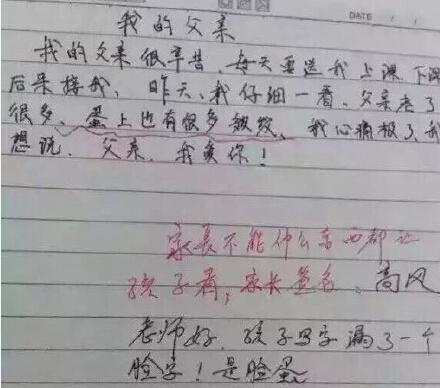 我的父亲
DATE
我的父亲很辛苦、每天要送我上课、下课
后来接我、昨天、我仔细一看、父亲老了
很多、蛋上也有很多皱纹、我心痛极了、我
想说、父亲、我爱你！
家长不能什么东西都让
孩子看，家长签名、高风
老师好、孩子写字漏了一个
脸字！是脸蛋